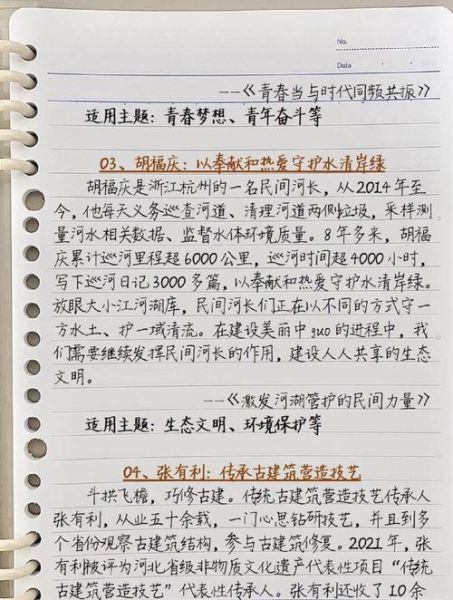 No.
Date
——《青春当与时代同频共振》
适用主题：青春梦想、青年奋斗等
03、胡福庆：以奉献和热爱守护水清岸绿
胡福庆是浙江杭州的一名民间河长，从2014年至
今，他每天义务巡查河道、清理河道两侧垃圾，采样测
量河水相关数据、监督水体环境质量。8年多来，胡福
庆累计巡河里程超6000公里，巡河时间超4000小时，
写下巡河日记3000多篇，以奉献和热爱守护水清岸绿。
放眼大小江河湖库，民间河长们正在以不同的方式守一
方水土、护一域清流。在建设美丽中guo的进程中，我
们需要继续发挥民间河长的作用，建设人人共享的生态
文明。
——《激发河湖管护的民间力量》
适用主题：生态文明、环境保护等
04、张有利：传承古建筑营造技艺
斗拱飞檐，巧修古建。传统古建筑营造技艺传承人
张有利，从业五十余载，一门心思钻研技艺，并且到多
个省份观察古建筑结构，参与古建筑修复。2021年，张
有利被评为河北省级非物质文化遗产代表性项目“传统
古建筑营造技艺”代表性传承人。张有利还收了10余